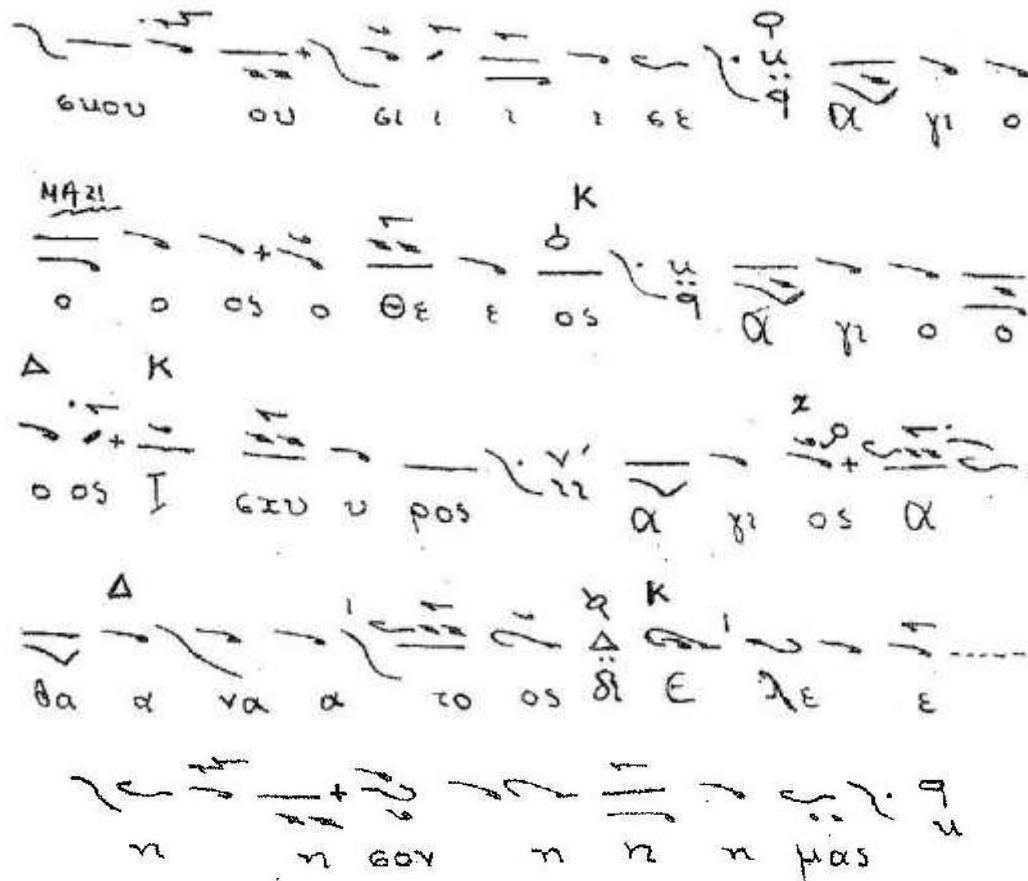 σμου ου σι ι ι ι σε Α γι ο
Κ
ο ο ος ο Θε ε ος Α γι ο ο
Δ Κ
ο ος Ι σχυ υ ρος Α γι ος Α
Δ Κ
θα α να α το ος Ε λε ε
η η σον η η η μας